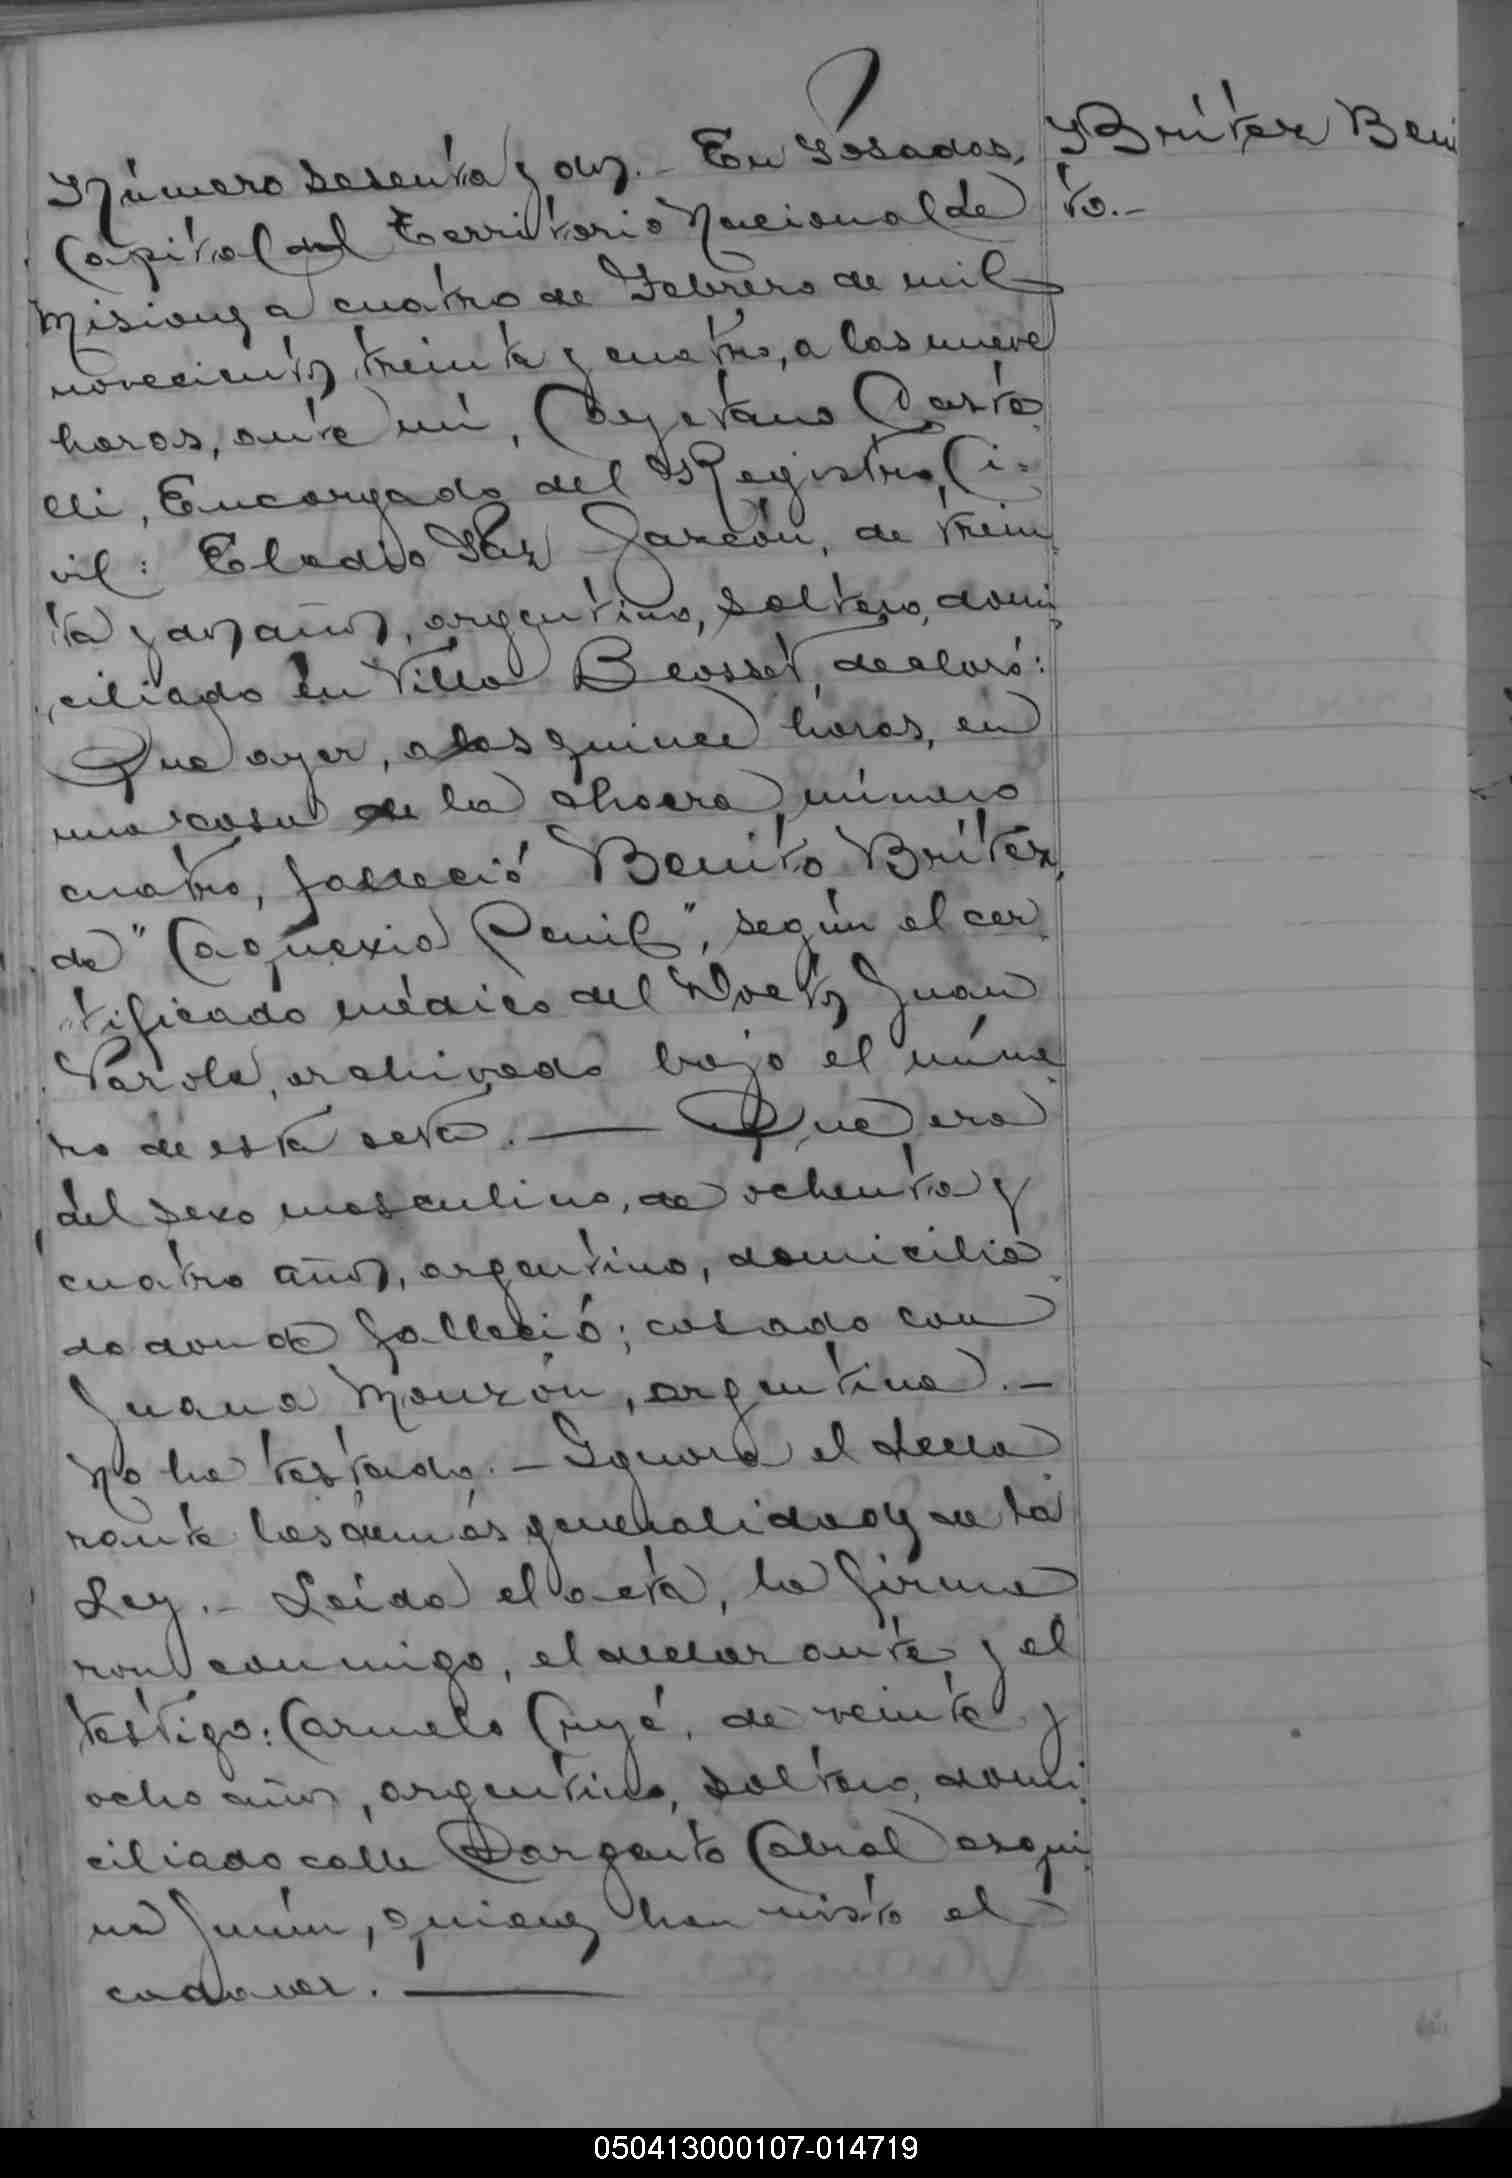 Número sesenta y dos.- En Posadas,
Capital del Territorio Nacional de
Misiones a cuatro de Febrero de mil
novecientos treinta y cuatro, a las nueve
horas, ante mí, Cayetano Casto
lli, Encargado del Registro Ci=
vil: Eladio Paz Garzón, de trein
ta y dos años, argentino, soltero, domi
ciliado en Villa Blosset, declaró:
Que ayer, a las quince horas, en
una casa de la chacra número
cuatro, falleció Benito Brítez,
de "Caquexia Senil", según el cer
tificado médico del Doctor Juan
Parola, archivado bajo el núme
ro de esta acta. — Que era
del sexo masculino, de ochenta y
cuatro años, argentino, domicilia
do donde falleció; casado con
Juana Monzón, argentina.-
No ha testado.- Ignora el decla
rante las demás generalidades de la
Ley.- Leída el acta, la firma
ron conmigo, el declarante y el
testigo: Carmelo Cuyé, de veinte y
ocho años, argentino, soltero, domi
ciliado calle Sargento Cabral esqui
na Junín, quienes han visto el
cadaver. —
Brítez Beni
to.-
050413000107-014719